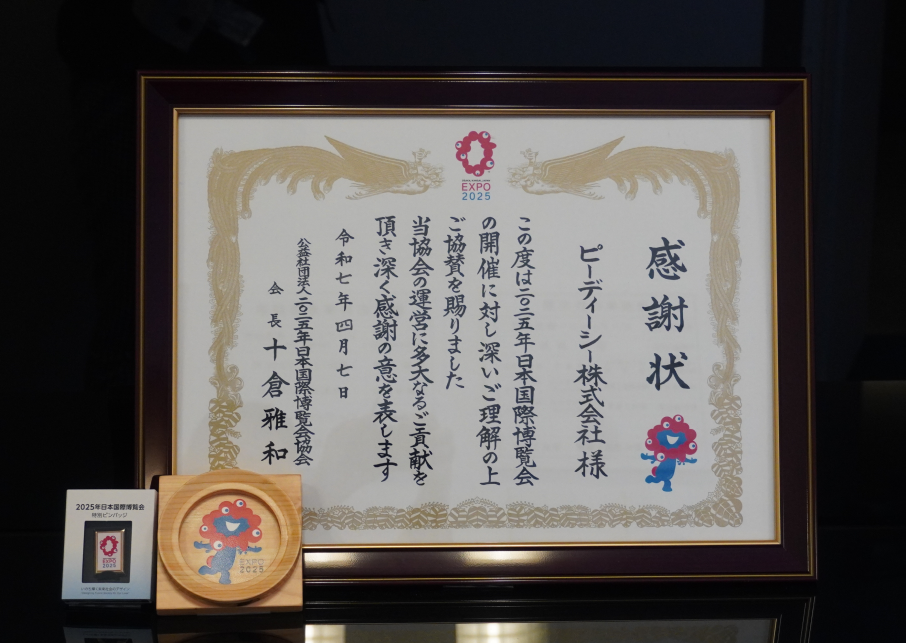 EXPO
2025
感謝状
ピーディーシー株式会社 様
この度は二〇二五年日本国際博覧会
の開催に対し深いご理解の上
ご協賛を賜りました
当協会の運営に多大なるご貢献を
頂き深く感謝の意を表します
令和七年四月七日
公益社団法人 二〇二五年日本国際博覧会協会
会長 十倉雅和
2025年日本国際博覧会
特別ピンバッジ
EXPO
2025
EXPO
2025